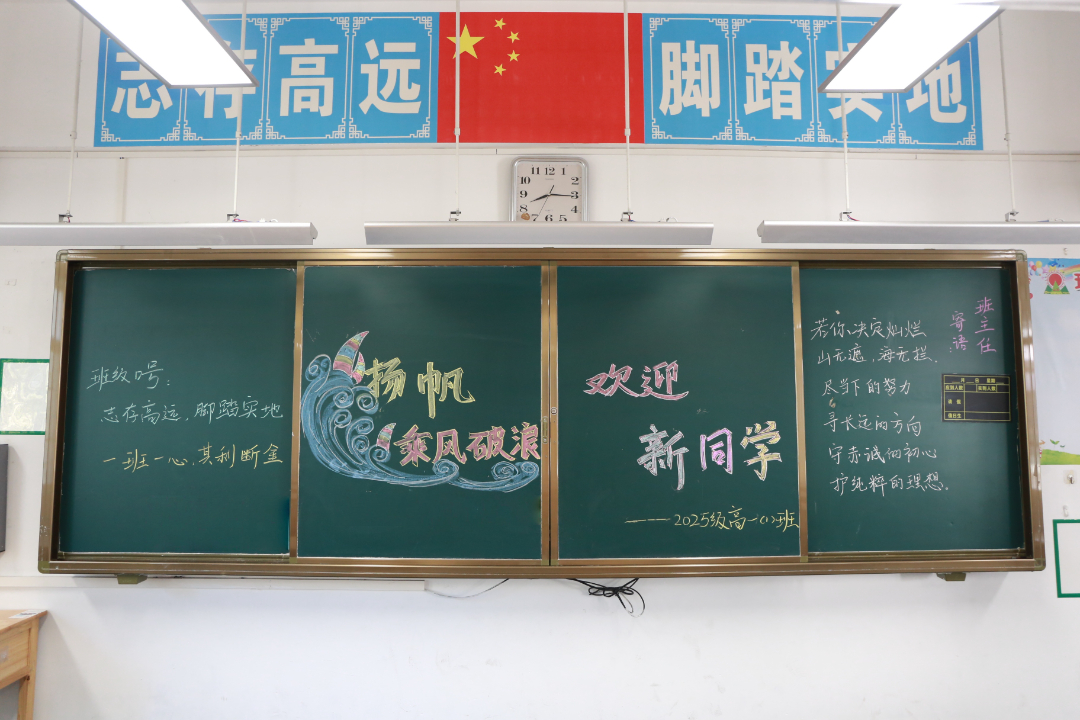 志存高远 脚踏实地
11 12 1
10 2
9 3
8 4
7 6 5
班级口号：
志存高远，脚踏实地
一班一心，其利断金
扬帆
乘风破浪
欢迎
新同学
——2025级高一(1)班
班主任
寄语
若你决定灿烂
山无遮，海无拦。
尽当下的努力
寻长远的方向
守赤诚的初心
护纯粹的理想。
月 日 星期